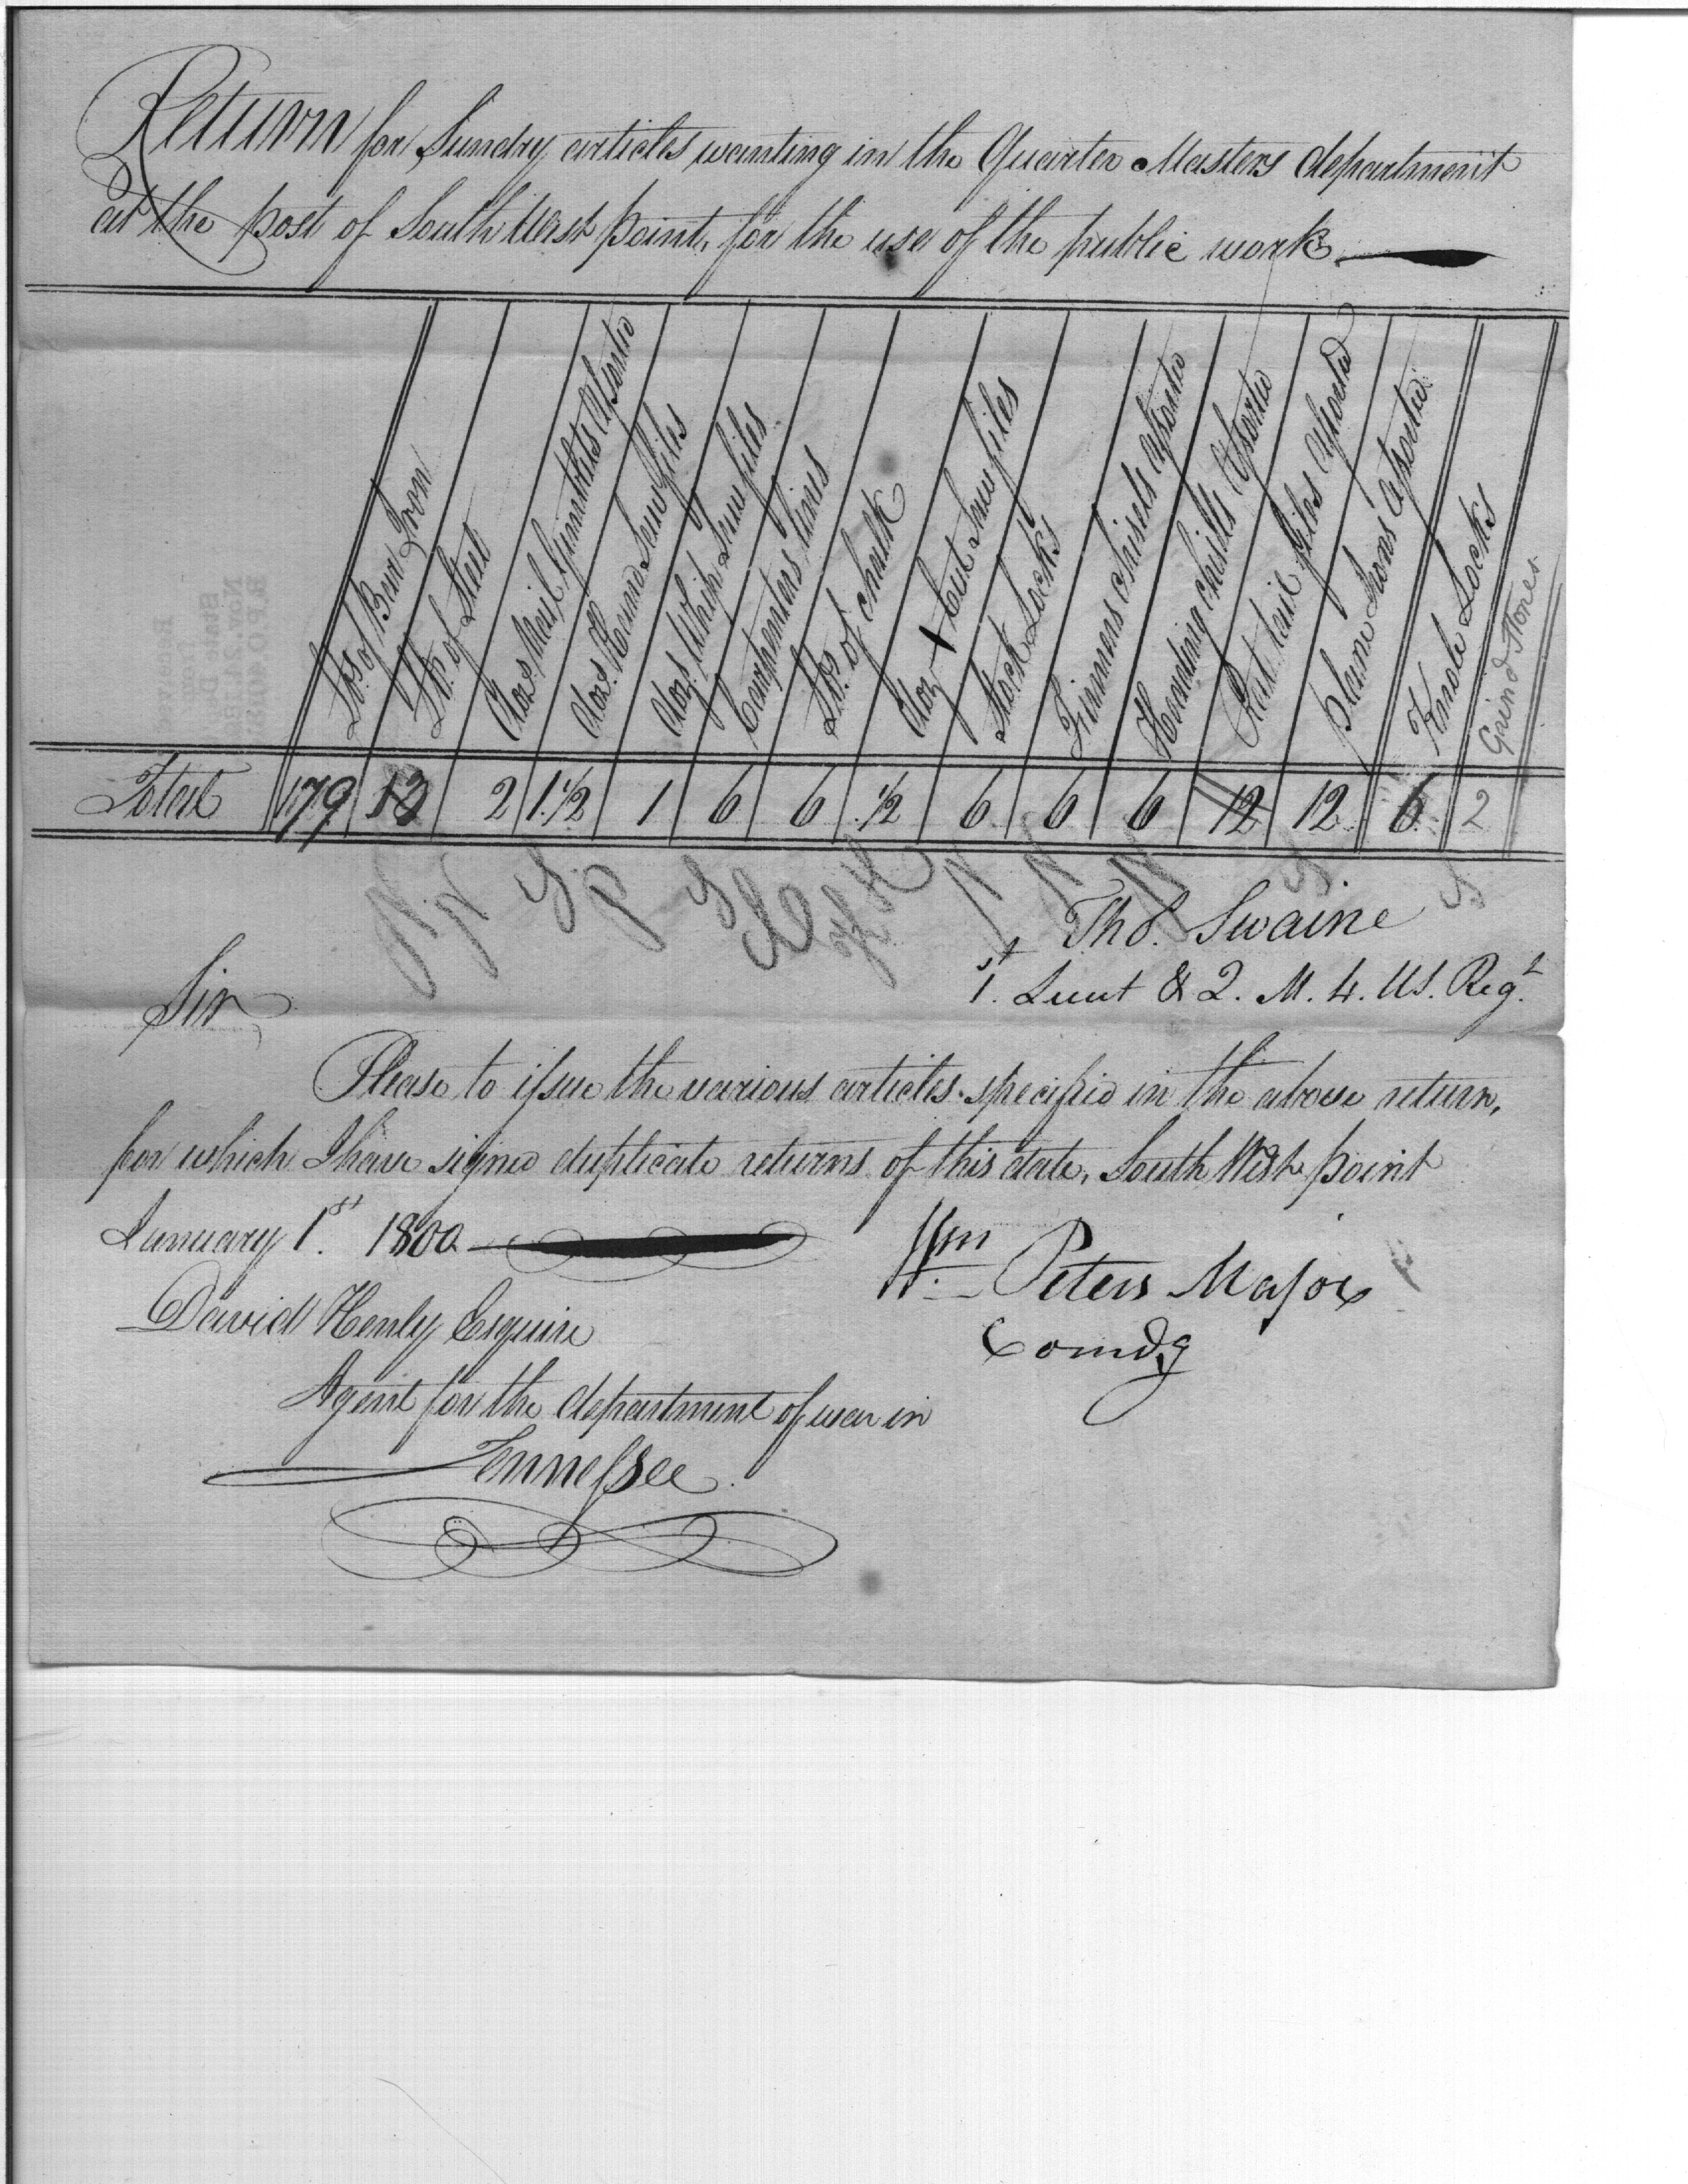 Return for Sundry articles wanting in the Quarter Masters department
at the post of South West point, for the use of the public work.
lbs. of Barr Iron
lbs. of Steel
doz. Nail Gimblets Assorted
doz. Hand Saw files
doz. Whip Saw files
Carpenters lines
lbs. of chalk
doz X Cut Saw files
Stock Locks
Firmers chisels assorted
Heading chisells Assorted
Rat tail files assorted
plane Irons assorted
Knob Locks
Grind stones
Total 179 13 2 1.1/2 1 6 6 1/2 6 6 6 12 12 6 2
Tho.s Swaine
1.st Lieut & Q. M. 4. US. Reg.t
Sir
Please to issue the various articles specified in the above return,
for which I have signed duplicate returns of this date, South West point
January 1.st 1800
Wm Peters Major
Comdg
David Henly Esquire
Agent for the department of war in
Tennessee.